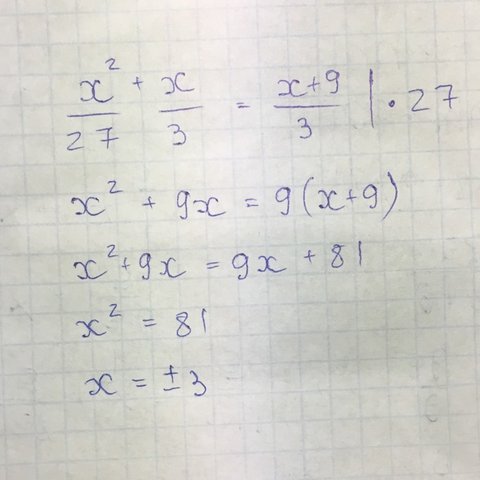 x²/27 + x/3 = (x+9)/3 | · 27
x² + 9x = 9(x+9)
x² + 9x = 9x + 81
x² = 81
x = ±3